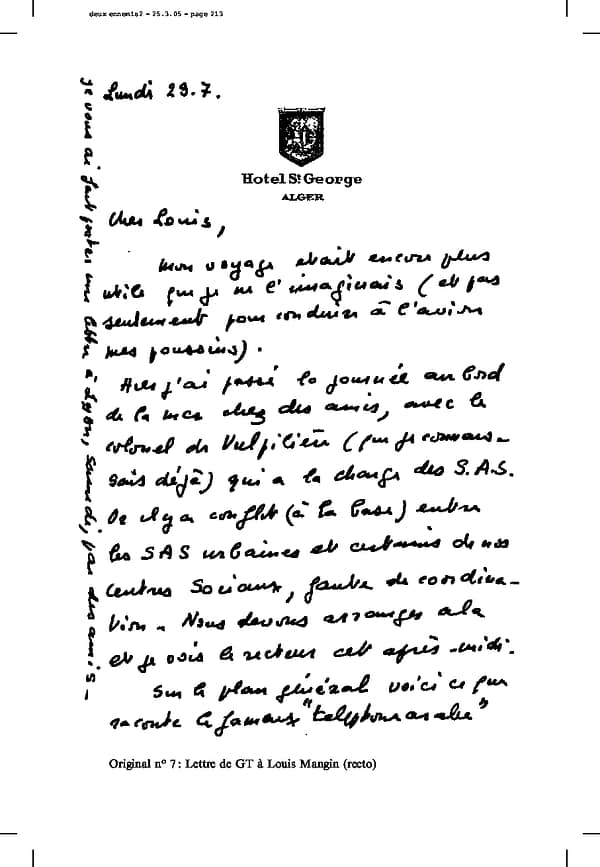 deux ennemis2 - 25.3.05 - page 213
Lundi 29.7.
Hotel St George
ALGER
Cher Louis,
Mon voyage etait encore plus
utile que je ne l'imaginais (et pas
seulement pour conduire à l'avion
mes poussins).
Hier j'ai passé la journée au bord
de la mer chez des amis, avec le
colonel de Vulpilière (que je connais-
sais déjà) qui a la charge des S.A.S.
Or il y a conflit (à la base) entre
les SAS urbaines et certains de nos
Centres Sociaux, faute de coordina-
tion - Nous devons arranger cela
et je vois le recteur cet après-midi.
Sur le plan général voici ce que
raconte le fameux "telephone arabe"
je vous ai fait porter une lettre à Lyon, samedi, par des amis -
Original nº 7 : Lettre de GT à Louis Mangin (recto)